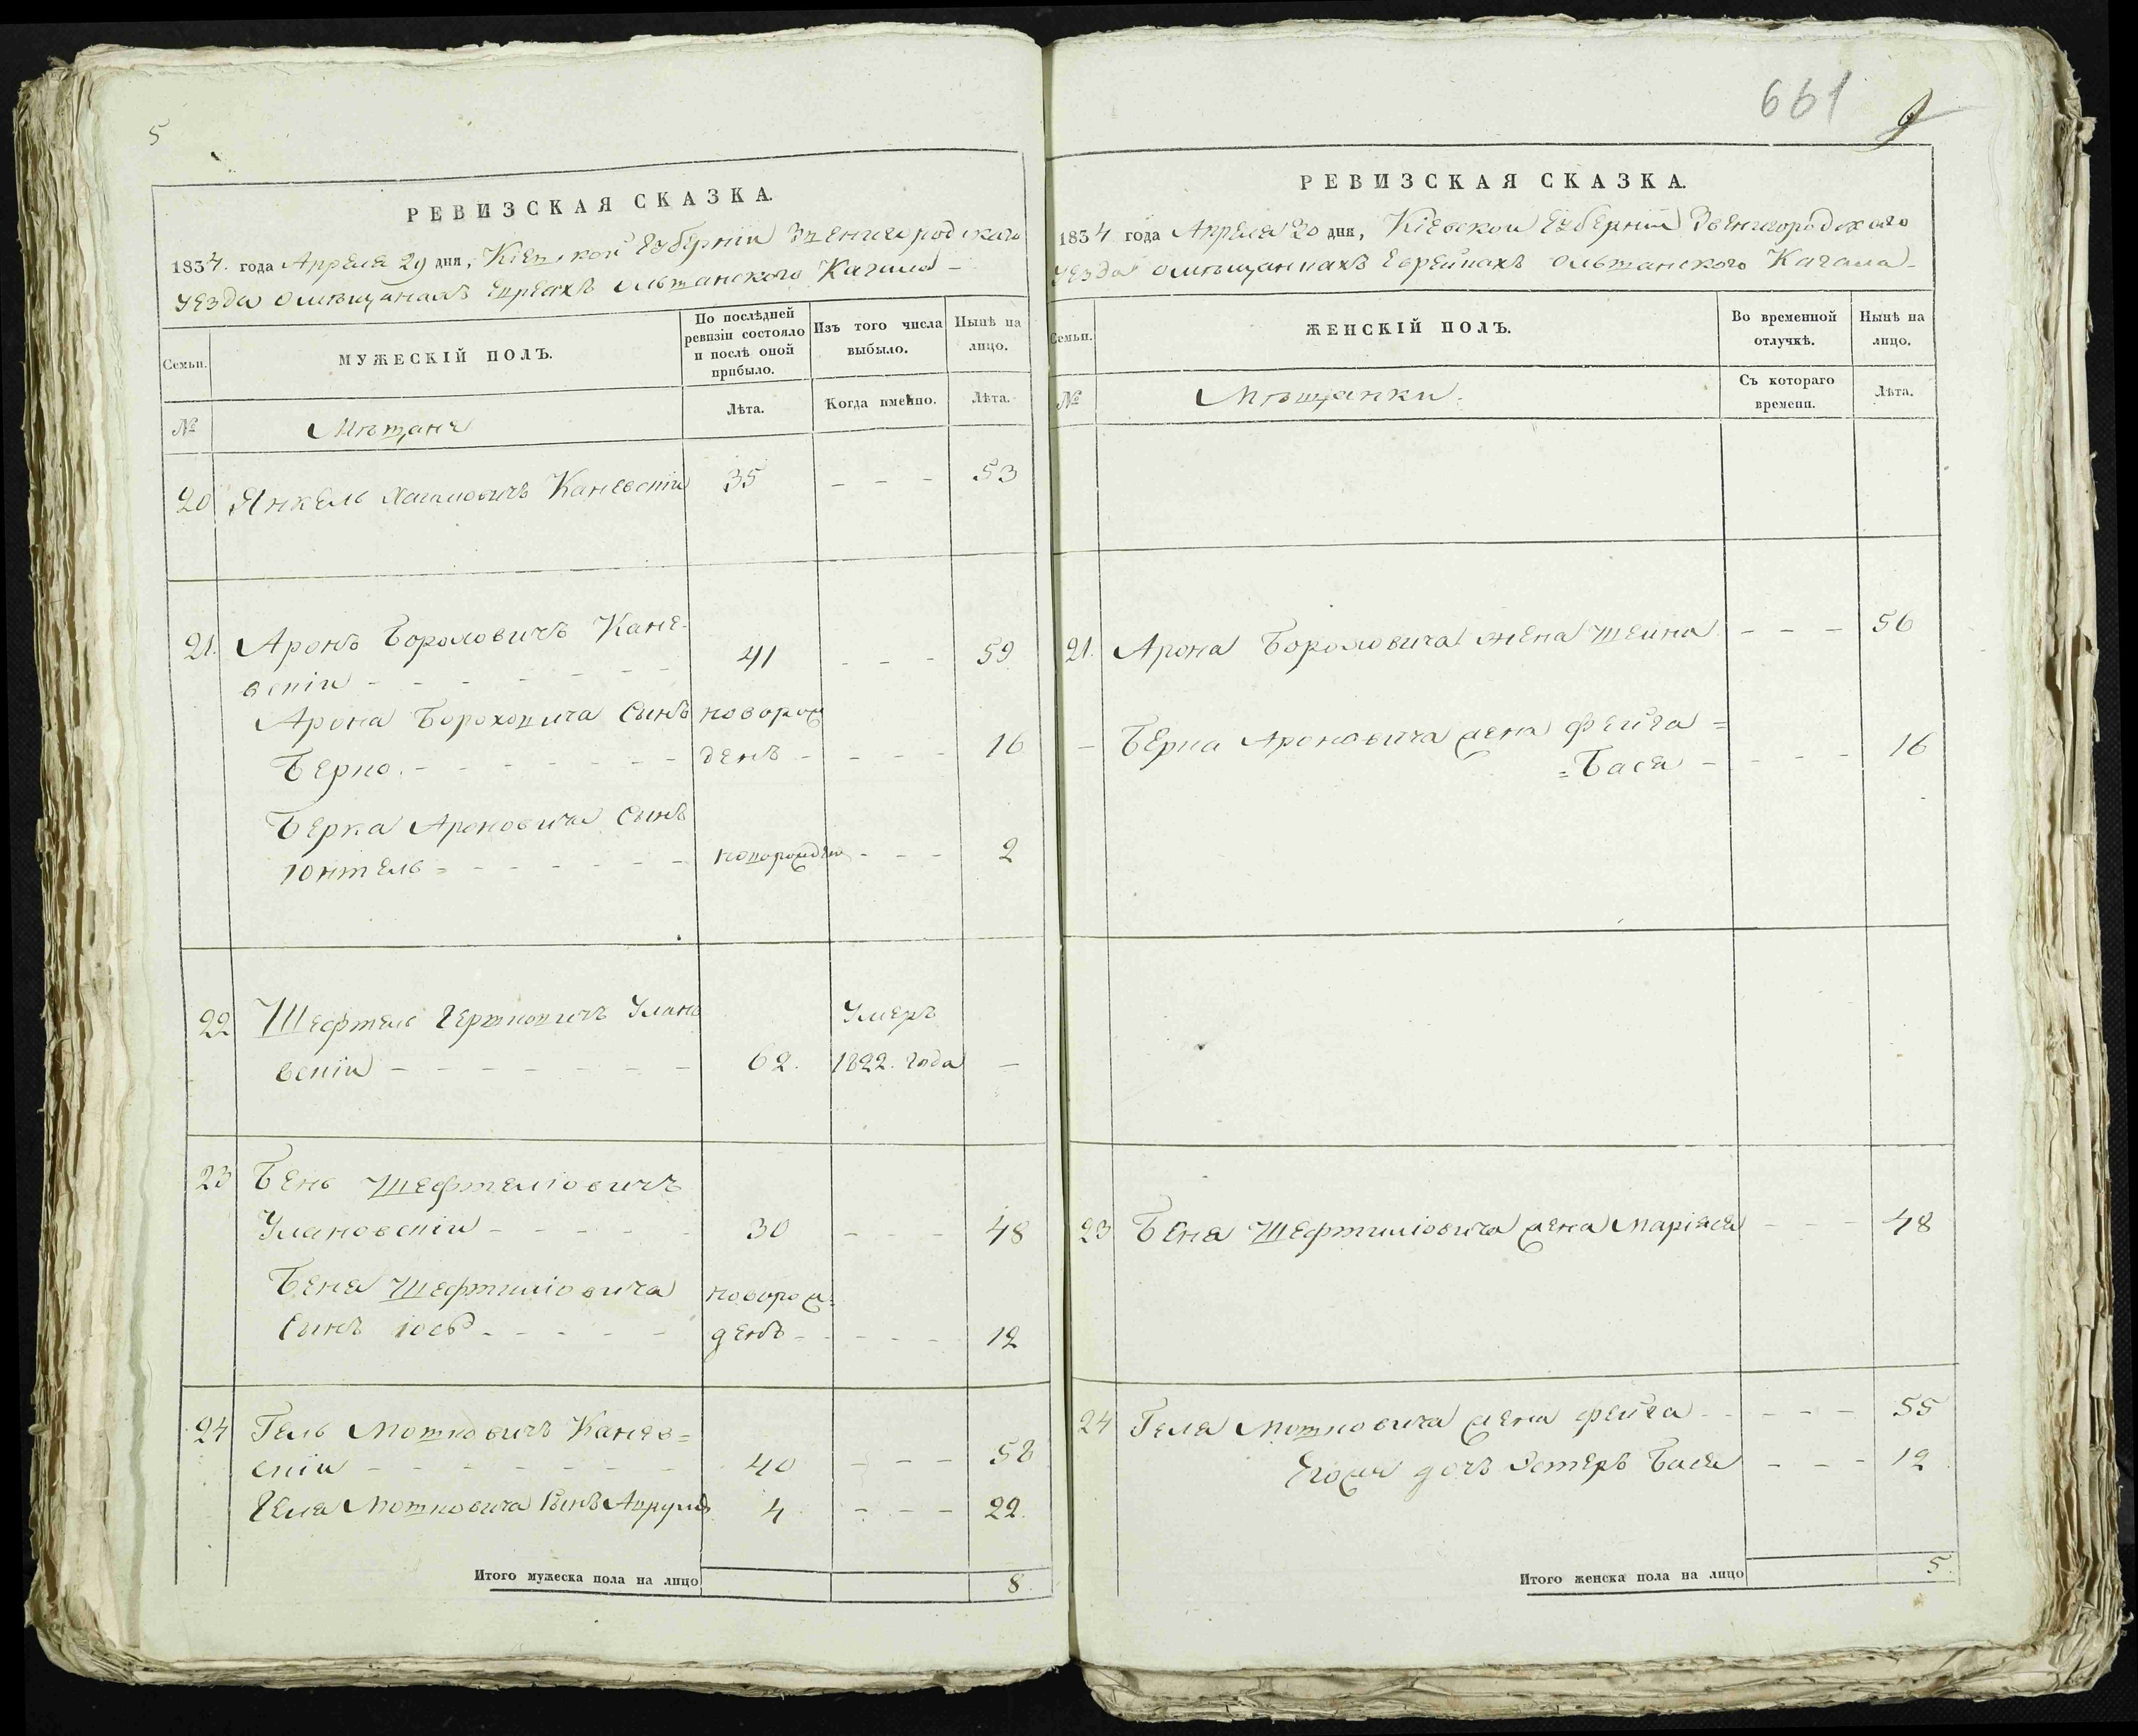 5
РЕВИЗСКАЯ СКАЗКА.
1834. года Апреля 29 дня, Кіевской Губерніи Звенигородскаго
уезда о мѣщанахъ Евреахъ Ольшанского Кагала -
Семьи.
МУЖЕСКІЙ ПОЛЪ.
По послѣдней ревизіи состояло и послѣ оной прибыло.
Изъ того числа выбыло.
Нынѣ на лицо.
№
Мѣщане
Лѣта.
Когда именно.
Лѣта.
20 Янкель Хаимовичъ Каневскій 35 - - - 53
21. Аронъ Бороховичъ Кане-
вскій - - - 41 - - - 59
Арона Бороховича сынъ новорож
Берко. - - - денъ - - - 16
Берка Ароновича сынъ
Юнтель - - - новорожденъ - - - 2
22 Шефтель Гершковичъ Улано
вскій - - - 62. Умеръ 1822. года -
23 Бень Шефтеліовичъ
Улановскій - - - 30 - - - 48
Беня Шефтиліовича новорож-
сынъ Іось - - - денъ - - - 12
24 Гель Мошковичъ Канев=
скій - - - 40 - - - 58
Геля Мошковича сынъ 4 - - - 22.
Итого мужеска пола на лицо 8.
661
РЕВИЗСКАЯ СКАЗКА.
1834 года Апреля 20 дня, Кіевской Губерніи Звенигородскаго
уезда о мѣщанкахъ Еврейкахъ Ольшанского Кагала -
Семьи.
ЖЕНСКІЙ ПОЛЪ.
Во временной отлучкѣ.
Нынѣ на лицо.
№
Мѣщанки.
Съ котораго времени.
Лѣта.
21. Арона Бороховича жена Шейна - - - 56
- Берка Ароновича жена Фейга =
= Бася - - - 16
23 Беня Шефтиліовича жена Маріася - - - 48
24 Геля Мошковича жена Фейга - - - 55
Егоже дочь Эстеръ Бася - - - 12
Итого женска пола на лицо 5.